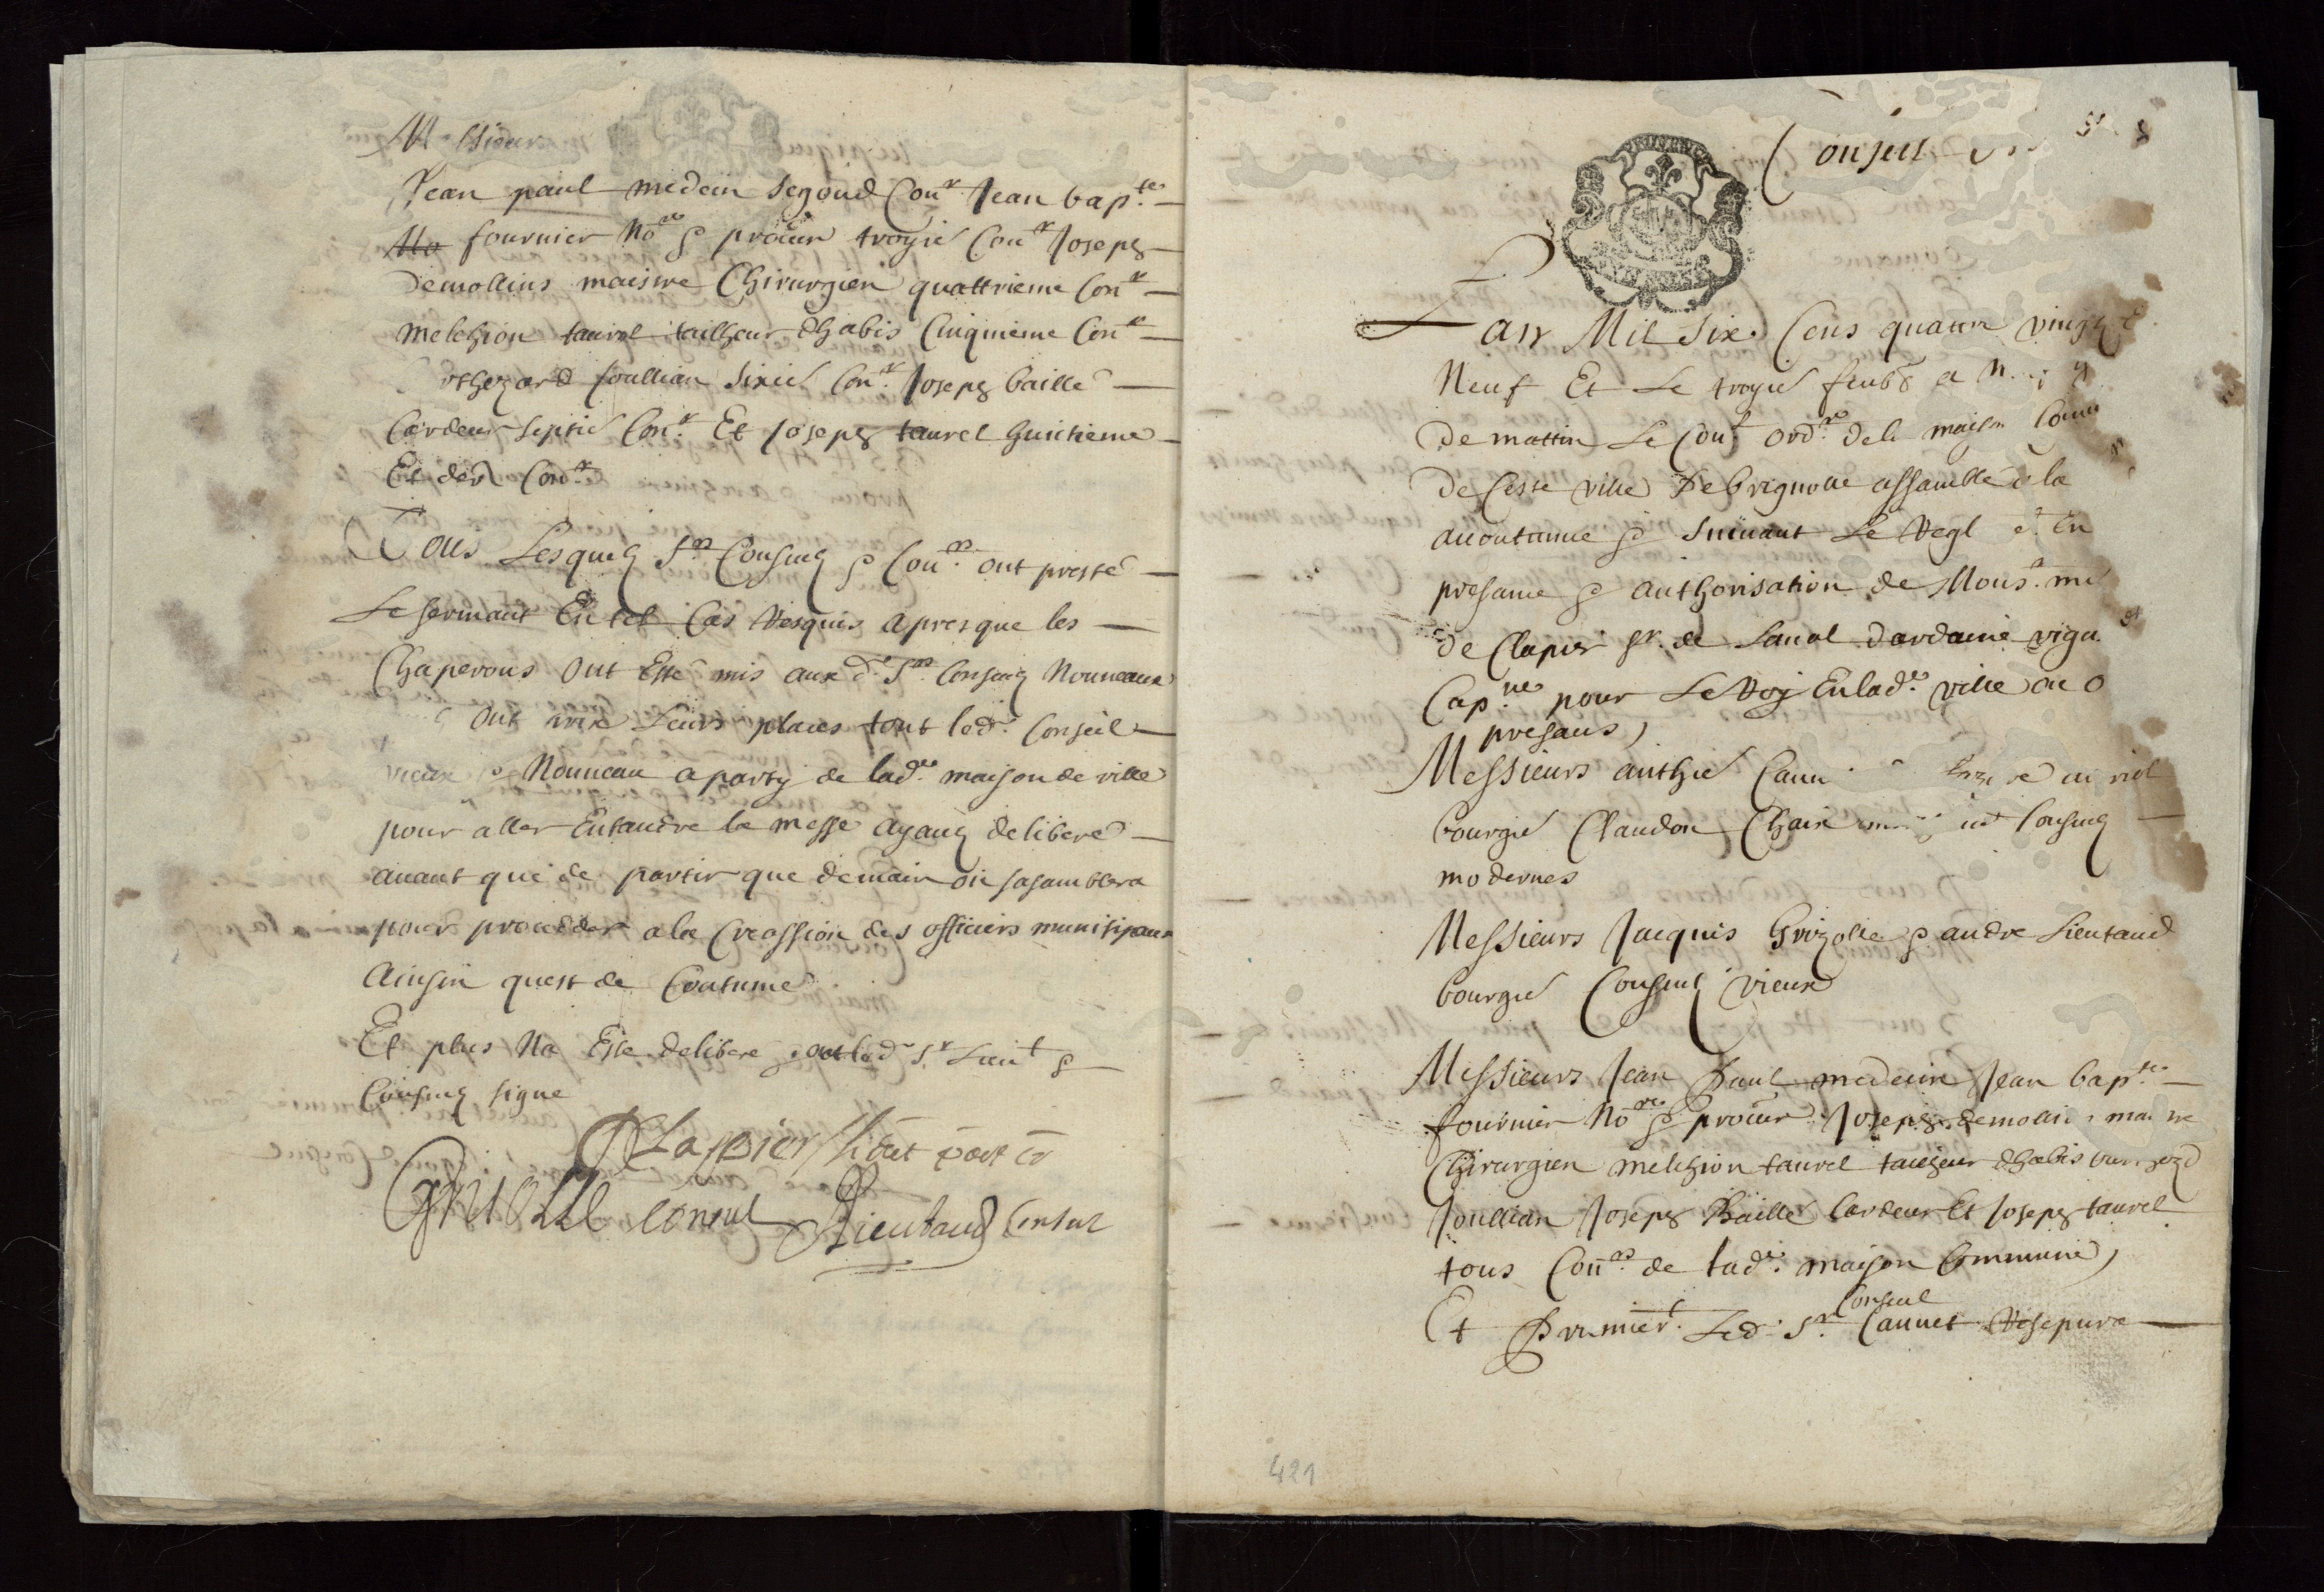 Messieurs
Jean paul medecin segond Con.er Jean bap.te
fournier No.re & procur troyie Con.er Joseph
demollins maistre Chirurgien quattrieme Con.er
melchion taurel tailheur dhabis Cinquieme Con.er
Joullian sixie Con.er Joseph baille
Cardeur septie Con.er Et Joseph taurel huictieme
Et der Con.er
Tous Lesquels S.rs Consuls & Con.ers ont presté
Le sermant En tel Cas Requis apres que les
Chaperons Ont Esté mis aux d. S.rs Consuls Nouveaux
Ont leurs places tout led. Conseil
vieux & Nouveau a party de lad.e maison de ville
pour aller Entandre la messe ayant deliberé
avant que de partir que demain on sasamblera
pour proceder a la Creassion des officiers munisipaux
Ainsin quest de Coutume
Et plus Na Este deliberé led S.r Lieut &
Consuls signe
Clapier
Consul Lieutaud Consul
Conseil
Lan Mil Six Cens quattre vingt
Neuf Et Le troyie a
de mattin Le Con.l Ord.re de la maison Comu
de Ceste ville De brignolle assamblé a la
acoutumee & suivant Le Regl et En
presance & authorisation de Mons.r
de Clapier S.r de
Cap.ne pour Le Roy En lad.e ville
presans,
Messieurs
bourgie Claudon Chaix Consuls
modernes
Messieurs Jacques Grizolle & andre Lieutaud
bourgie Consuls vieux
Messieurs Jean Paul medecin Jean bap.te
fournier No.re & procur Joseph demollins
Chirurgien melchion taurel tailheur dhabis
Joullian Joseph Baille Cardeur Et Joseph taurel
tous Con.ers de lad.e maison Commune,
Consul
Et Premier.t Led. S.r Cannet
421